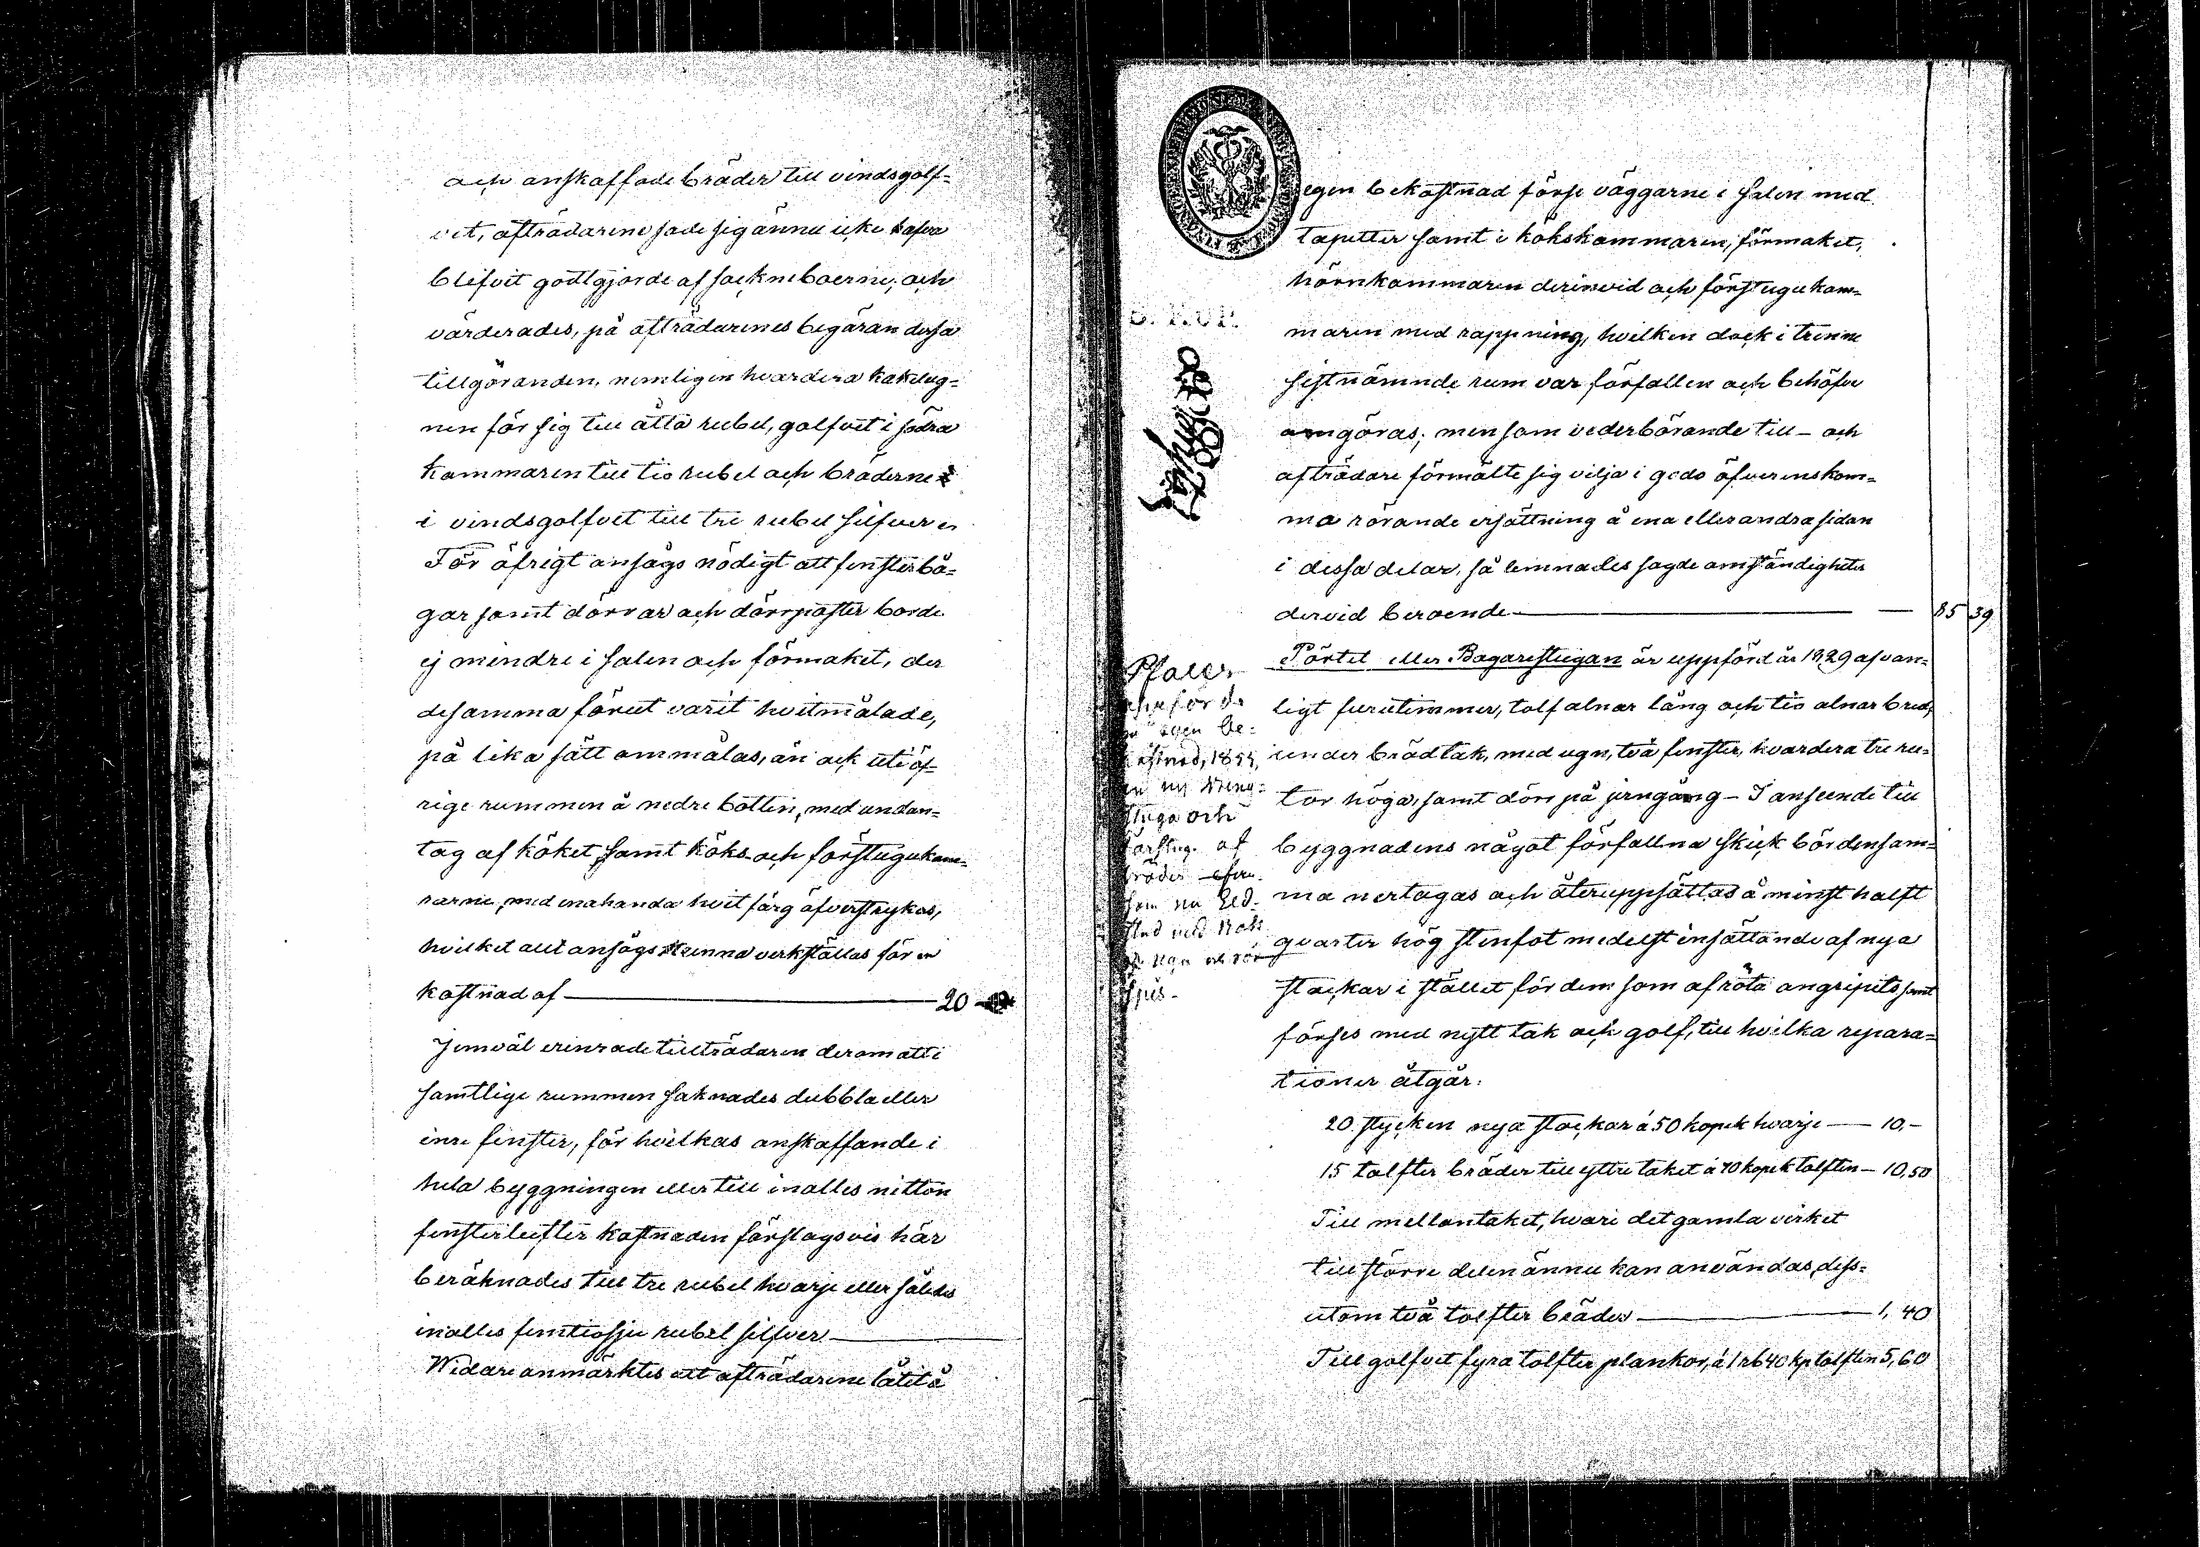 och anskaffade bräder till vindsgolf=
vet, afträdarene sade sig ännu icke hafva
blifvit godtgjorde af socknéboerne, och
värderades, på afträdarenes begäran dessa
tillgöranden, nemligen hvardera kakelug=
nen för sig till åtta rubel, golfvet i södra
kammaren till tio rubel och bräderne
i vindsgolfvet till tre rubel silfver
För öfrigt ansågs nödigt att fensterbå=
gar samt dörrar och dörrposter borde
ej mindre i salen och förmaket, der
desamma förut varit hvitmålade,
på lika sätt ommålas, än ock uti öf=
rige rummen å nedre botten, med undan=
tag af köket, samt köks- och förstugukam=
rarne, med enahanda hvit färg öfverstrykas,
hvilket allt ansågs kunna verkställas för en
kostnad af — 20
Jemväl erinrade tillträdaren derom att i
samtlige rummen saknades dubbla eller
inre fenster, för hvilkas anskaffande i
hela byggningen eller till inalles nitton
fensterlufter kostnaden förslagsvis här
beräknades till tre rubel hvarje eller således
inalles femtiosju rubel silfver —
Widare anmärktes att afträdarene låtit å
egen bekostnad förse väggarne i salen med
tapetter samt i kökskammaren, förmaket,
hörnkammaren derinvid och förstugukam=
maren med rappning, hvilken dock i trenne
sistnämnde rum var förfallen och behöfver
omgöras; men som vederbörande till- och
afträdare förmälte sig vilja i godo öfverenskom=
ma rörande ersättning å ena eller andra sidan
i dessa delar, så lemnades sagde omständigheter
dervid beroende — 85 39
Pörtet eller Bagarestugan är uppförd år 1829 af van=
ligt furutimmer, tolf alnar lång och tio alnar bred,
under brädtak, med ugn, två fenster, hvardera tre ru=
tor höga, samt dörr på jerngång — I anseende till
byggnadens något förfallna skick bör densam=
ma nertagas och återuppsättas å minst halft
qvarter hög stenfot medelst insättande af nya
stockar i stället för dem som af röta angripits samt
förses med nytt tak och golf, till hvilka repara=
tioner åtgår:
20 stycken nya stockar á 50 kopek hvarje — 10,-
15 tolfter bräder till yttre taket á 70 kopek tolften — 10,50
Till mellantaket, hvari det gamla virket
till större delen ännu kan användas, dess=
utom två tolfter bräder — 1,40
Till golfvet fyra tolfter plankor, á 1 rb 40 kp tolften 5,60
Pfaler
uppförde
egen be=
kostnad, 185
en ny
stuga och
förstug. af
bräder
som nu Eld-
stad med kak
ugn och rör
spis-